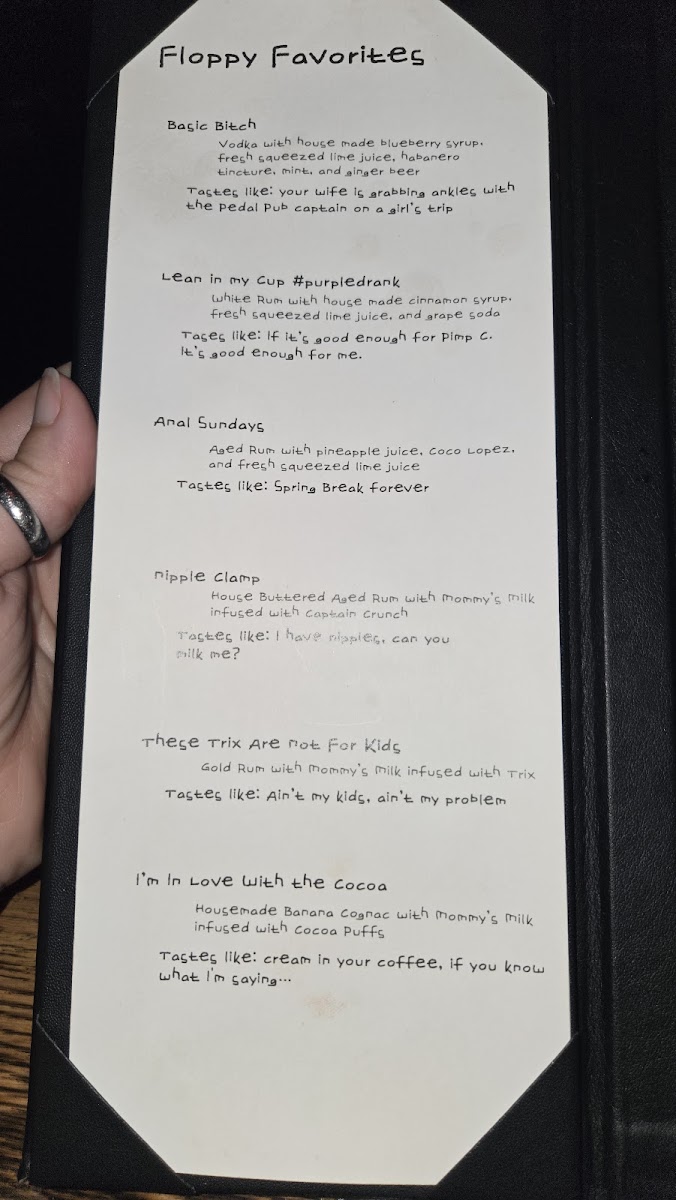 Floppy Favorites
Basic Bitch
Vodka with house made blueberry syrup,
fresh squeezed lime juice, habanero
tincture, mint, and ginger beer
Tastes like: your wife is grabbing ankles with
the pedal pub captain on a girl's trip
Lean in my Cup #purpledrank
White Rum with house made cinnamon syrup,
fresh squeezed lime juice, and grape soda
Tases like: If it's good enough for Pimp C.
It's good enough for me.
Anal Sundays
Aged Rum with pineapple juice, Coco Lopez,
and fresh squeezed lime juice
Tastes like: Spring Break forever
Nipple Clamp
House Buttered Aged Rum with Mommy's Milk
infused with Captain Crunch
Tastes like: I have nipples, can you
milk me?
These Trix Are Not For Kids
Gold Rum with Mommy's Milk infused with Trix
Tastes like: Ain't my kids, ain't my problem
I'm In Love With the Cocoa
Housemade Banana Cognac with Mommy's Milk
infused with Cocoa Puffs
Tastes like: cream in your coffee, if you know
what I'm saying...